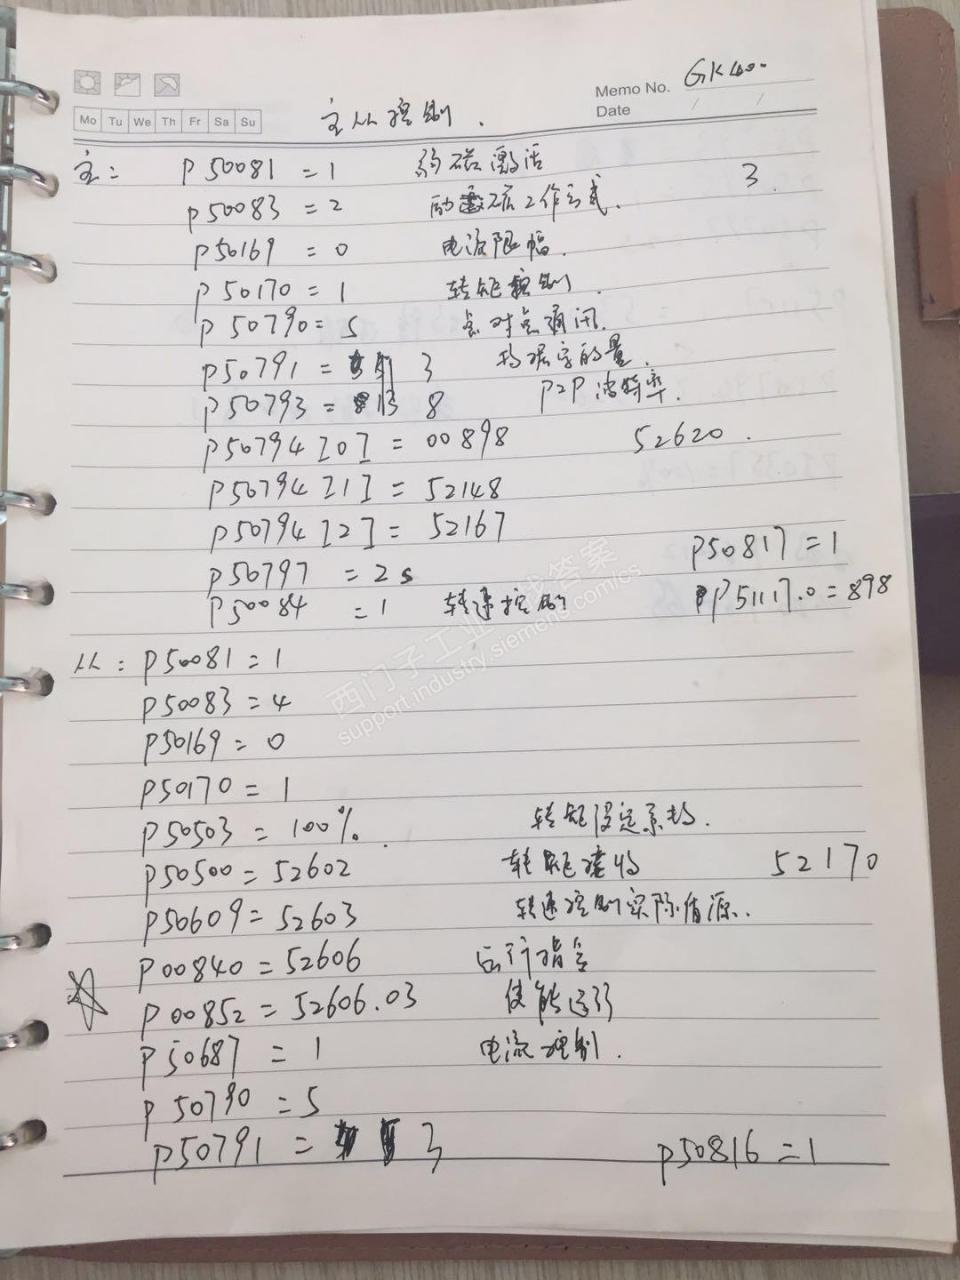 Memo No. GK400
Date / /
Mo Tu We Th Fr Sa Su
主从控制.
主: P50081 = 1 弱磁激活
P50083 = 2 励磁工作方式. 3.
P50169 = 0 电流限幅.
P50170 = 1 转矩控制.
P50790 = 5 点对点通讯.
P50791 = 3 数据字的量.
P50793 = 8 P2P 波特率.
P50794 [0] = 00898 52620.
P50794 [1] = 52148
P50794 [2] = 52167
P50797 = 2s P50817 = 1
P50084 = 1 转速控制 P51117.0 = 898
从: P50081 = 1
P50083 = 4
P50169 = 0
P50170 = 1
P50503 = 100%. 转矩设定系数.
P50500 = 52602 转矩 52170
P50609 = 52603 转速控制实际值源..
P00840 = 52606 运行指令
P00852 = 52606.03 使能运行
P50687 = 1 电流控制.
P50790 = 5
P50791 = 3 P50816 = 1
西门子工业 找答案
support.industry.siemens.com/cs